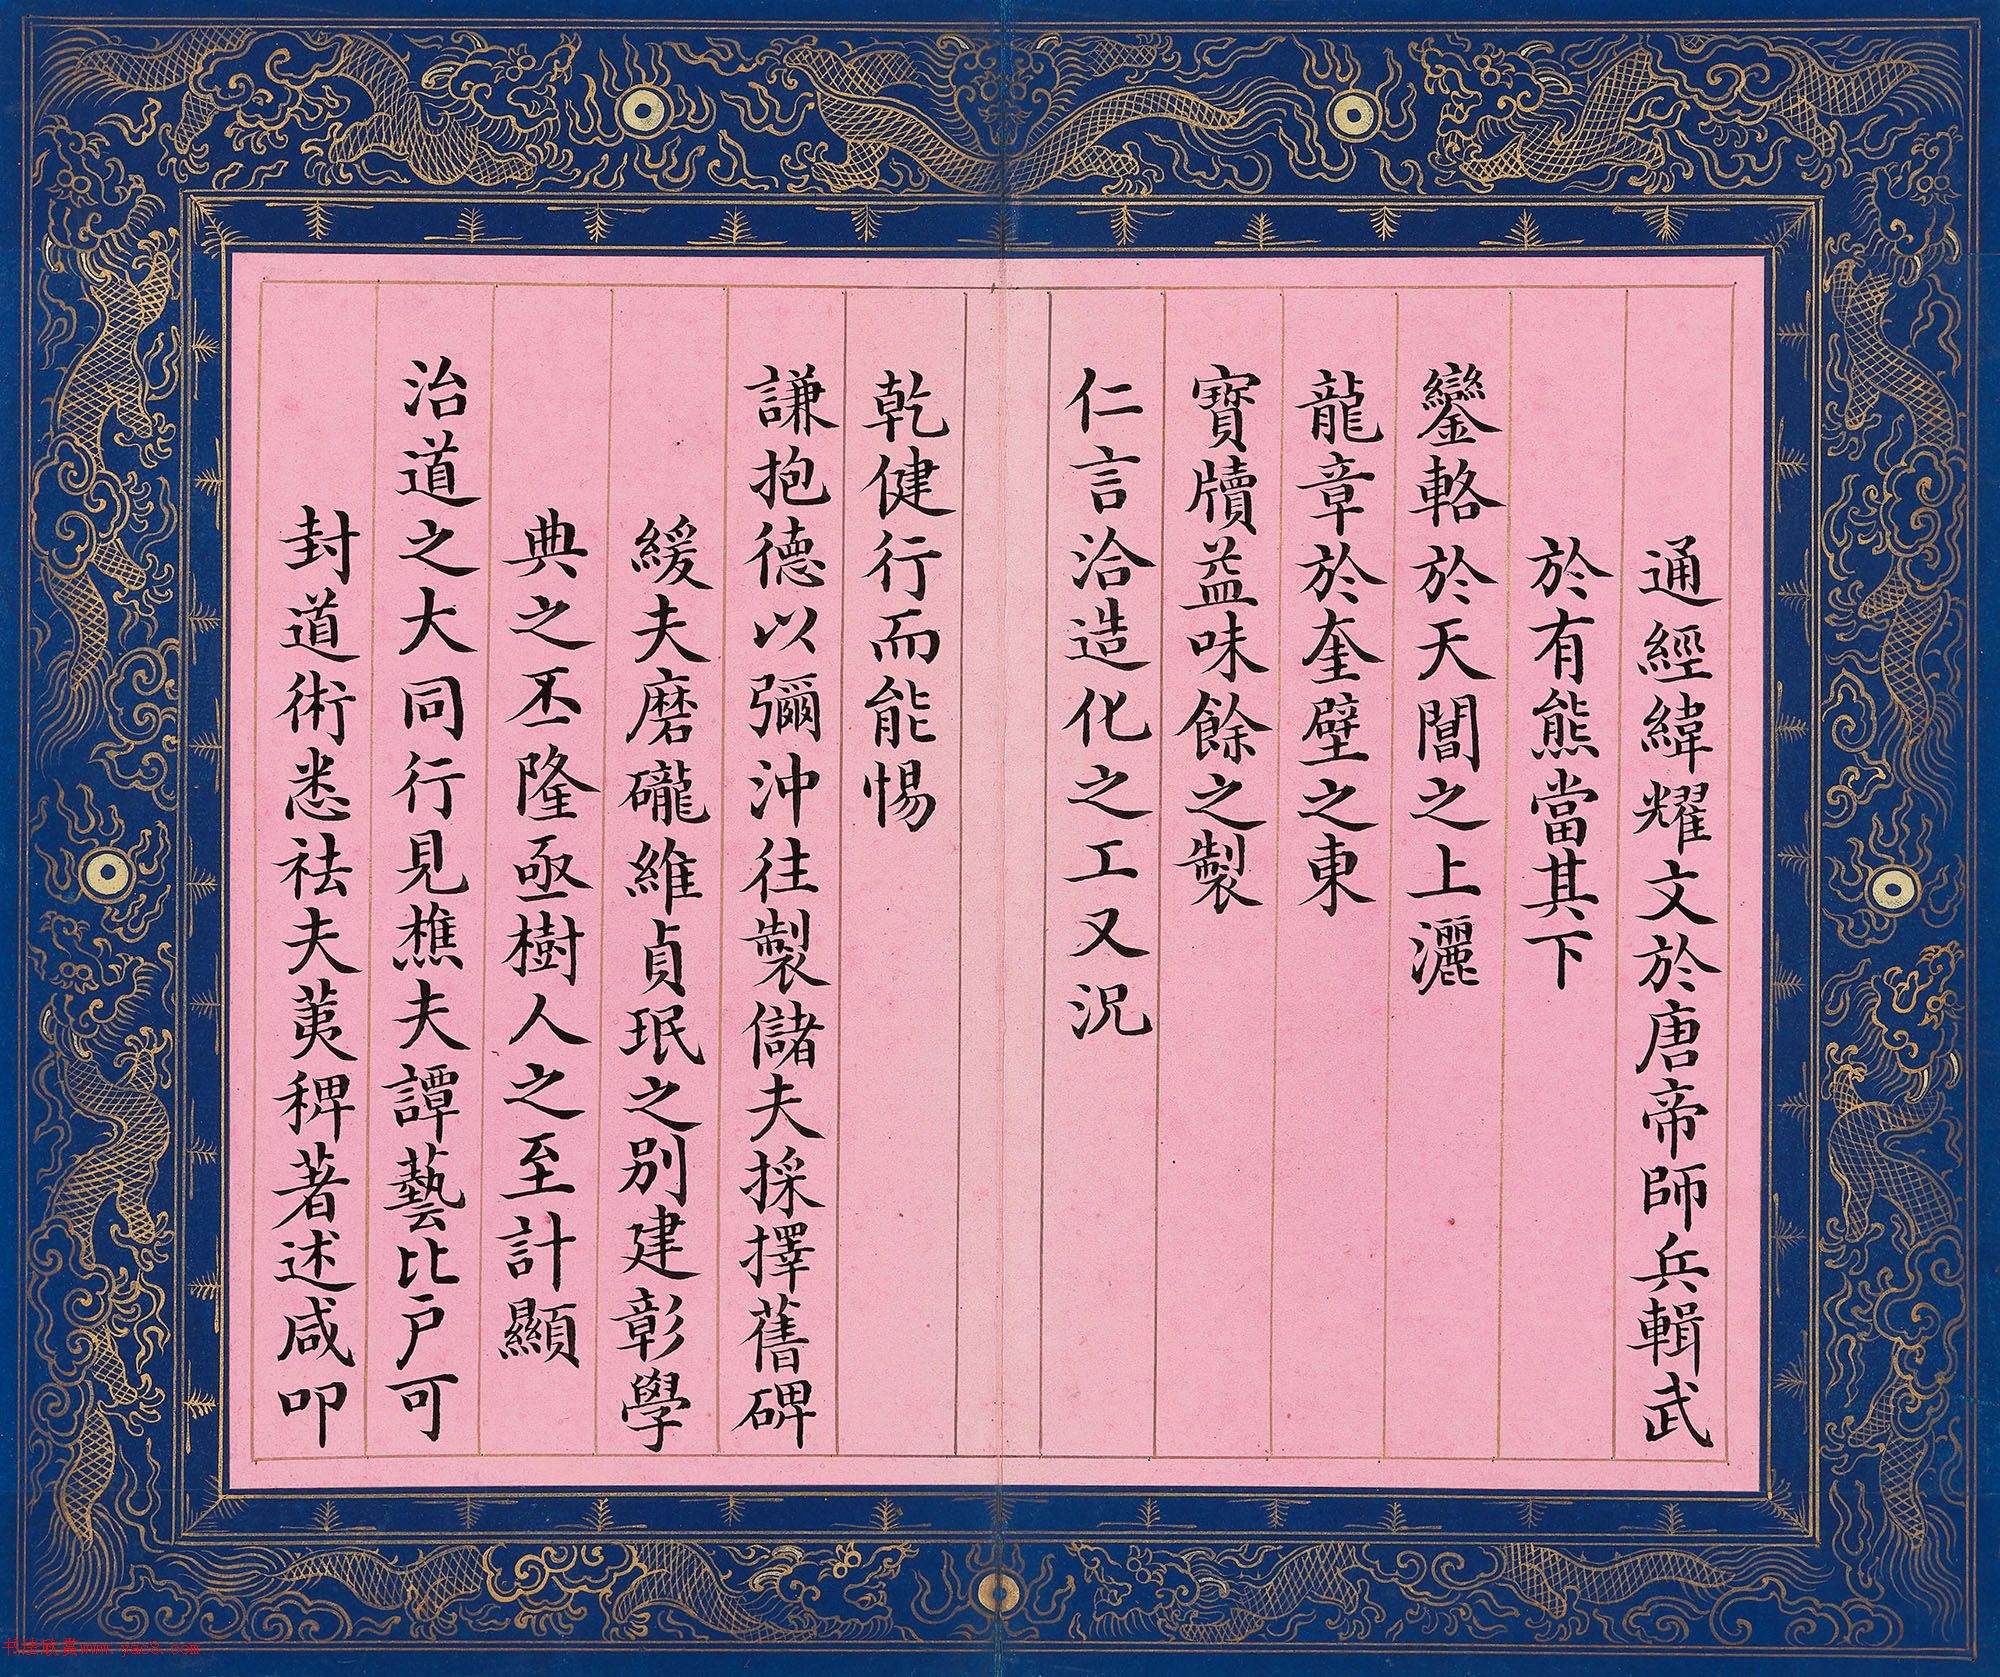 通經緯耀文於唐帝師兵輯武
於有熊當其下
鑾輅於天閶之上灑
龍章於奎壁之東
寳牘益味餘之製
仁言洽造化之工又況
乾健行而能惕
謙抱德以彌沖往製儲夫採擇舊碑
緩夫磨礲維貞珉之別建彰學
典之丕隆亟樹人之至計顯
治道之大同行見樵夫譚藝比户可
封道術悉祛夫荑稗著述咸叩
书法欣赏www.yac8.com